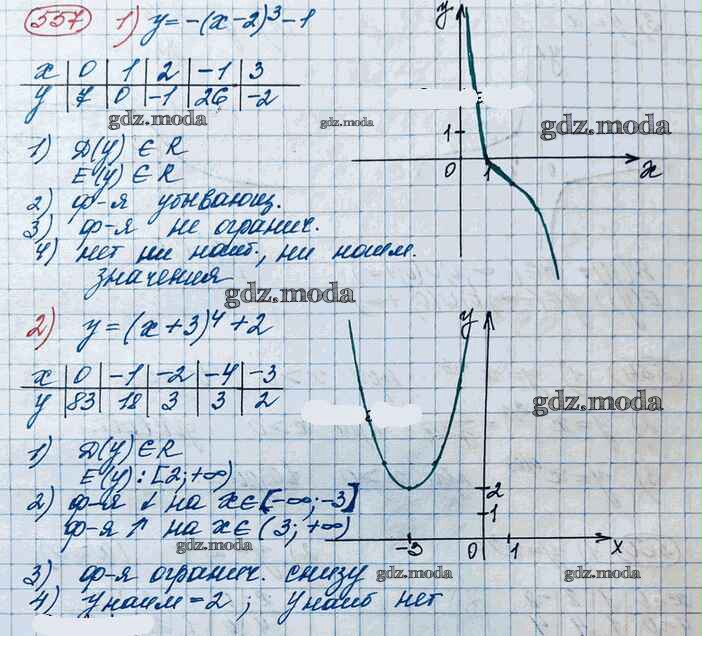 557 1) y = -(x-2)³-1
x | 0 | 1 | 2 | -1 | 3
y | 7 | 0 | -1 | 26 | -2
gdz.moda
gdz.moda
gdz.moda
1) D(y) ∈ R
E(y) ∈ R
2) ф-я убывающ.
3) ф-я не огранич.
4) нет ни наиб., ни наим.
значения
gdz.moda
y
1
0
1
x
2) y = (x+3)⁴+2
x | 0 | -1 | -2 | -4 | -3
y | 83 | 18 | 3 | 3 | 2
gdz.moda
1) D(y) ∈ R
E(y): [2; +∞)
2) ф-я ↓ на x∈[-∞; -3]
ф-я ↑ на x∈ (3; +∞)
gdz.moda
3) ф-я огранич. снизу
4) y наим = 2 ; y наиб нет
y
2
1
-3
0
1
x
gdz.moda
gdz.moda